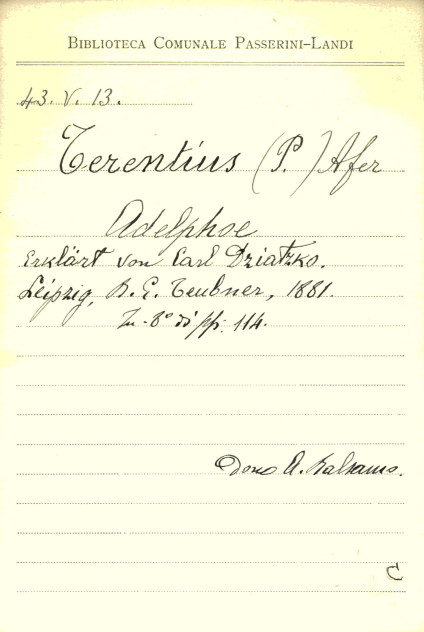 BIBLIOTECA COMUNALE PASSERINI-LANDI
43. V. 13.
Terentius (P.) Afer
Adelphoe
Erklärt von Carl Dziatzko.
Leipzig, B. G. Teubner, 1881.
In-8° di pp. 114.
Dono A. Balsamo.
C